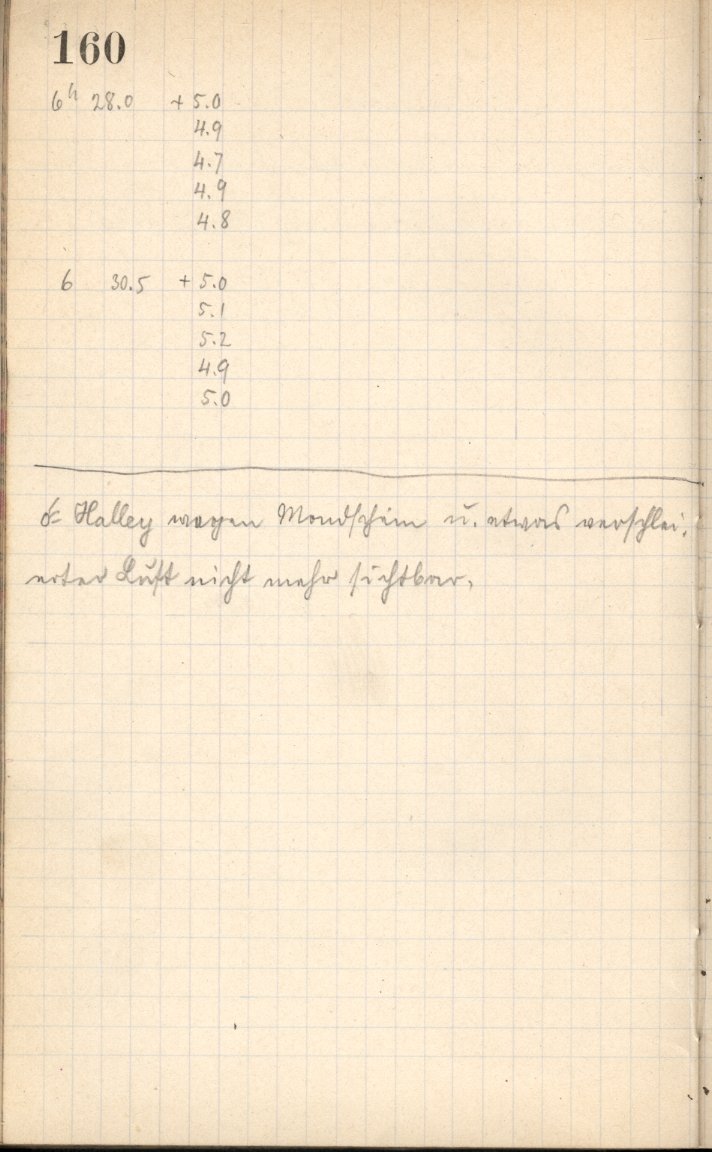 160
6h 28.0 + 5.0
4.9
4.7
4.9
4.8
6 30.5 + 5.0
5.1
5.2
4.9
5.0
☄ Halley wegen Mondschein u. etwas verschlei-
erter Luft nicht mehr sichtbar.